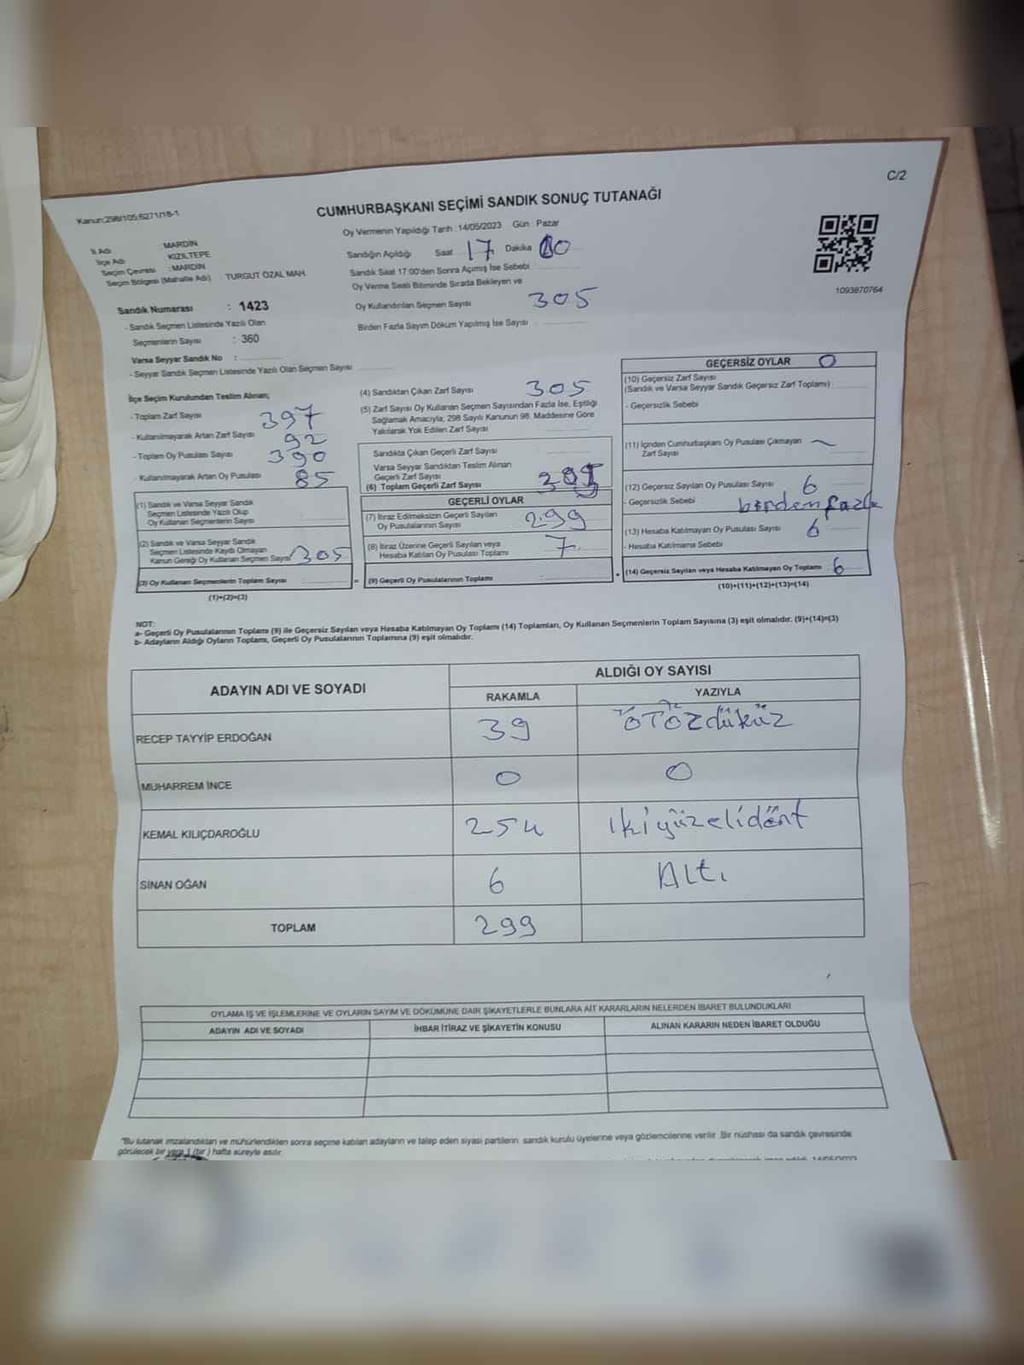 C/2
Kanun:298/105:6271/18-1
CUMHURBAŞKANI SEÇİMİ SANDIK SONUÇ TUTANAĞI
Oy Vermenin Yapıldığı Tarih : 14/05/2023 Gün : Pazar
İl Adı : MARDİN
İlçe Adı : KIZILTEPE
Seçim Çevresi : MARDİN
Seçim Bölgesi (Mahalle Adı) TURGUT ÖZAL MAH.
Sandığın Açıldığı Saat 17 Dakika 00
Sandık Saat 17:00'den Sonra Açılmış İse Sebebi
Oy Verme Saati Bitiminde Sırada Bekleyen ve
Oy Kullandırılan Seçmen Sayısı 305
Birden Fazla Sayım Döküm Yapılmış İse Sayısı :
1093870764
Sandık Numarası : 1423
- Sandık Seçmen Listesinde Yazılı Olan
Seçmenlerin Sayısı : 360
Varsa Seyyar Sandık No :
- Seyyar Sandık Seçmen Listesinde Yazılı Olan Seçmen Sayısı
İlçe Seçim Kurulundan Teslim Alınan;
- Toplam Zarf Sayısı 397
- Kullanılmayarak Artan Zarf Sayısı 92
- Toplam Oy Pusulası Sayısı 390
- Kullanılmayarak Artan Oy Pusulası 85
(1) Sandık ve Varsa Seyyar Sandık
Seçmen Listesinde Yazılı Olup
Oy Kullanan Seçmenlerin Sayısı
(2) Sandık ve Varsa Seyyar Sandık
Seçmen Listesinde Kaydı Olmayan
Kanun Gereği Oy Kullanan Seçmen Sayısı 305
(3) Oy Kullanan Seçmenlerin Toplam Sayısı
(1)+(2)=(3)
(4) Sandıktan Çıkan Zarf Sayısı 305
(5) Zarf Sayısı Oy Kullanan Seçmen Sayısından Fazla İse, Eşitliği
Sağlamak Amacıyla; 298 Sayılı Kanunun 98. Maddesine Göre
Yakılarak Yok Edilen Zarf Sayısı
Sandıkta Çıkan Geçerli Zarf Sayısı
Varsa Seyyar Sandıktan Teslim Alınan
Geçerli Zarf Sayısı
(6) Toplam Geçerli Zarf Sayısı
GEÇERLİ OYLAR
(7) İtiraz Edilmeksizin Geçerli Sayılan
Oy Pusulalarının Sayısı 299
(8) İtiraz Üzerine Geçerli Sayılan veya
Hesaba Katılan Oy Pusulası Toplamı 7
= (9) Geçerli Oy Pusulalarının Toplamı
GEÇERSİZ OYLAR 0
(10) Geçersiz Zarf Sayısı
(Sandık ve Varsa Seyyar Sandık Geçersiz Zarf Toplamı)
- Geçersizlik Sebebi
(11) İçinden Cumhurbaşkanı Oy Pusulası Çıkmayan
Zarf Sayısı
(12) Geçersiz Sayılan Oy Pusulası Sayısı 6
- Geçersizlik Sebebi birden fazla
(13) Hesaba Katılmayan Oy Pusulası Sayısı 6
- Hesaba Katılmama Sebebi
+ (14) Geçersiz Sayılan veya Hesaba Katılmayan Oy Toplamı 6
(10)+(11)+(12)+(13)=(14)
NOT:
a- Geçerli Oy Pusulalarının Toplamı (9) ile Geçersiz Sayılan veya Hesaba Katılmayan Oy Toplamı (14) Toplamları, Oy Kullanan Seçmenlerin Toplam Sayısına (3) eşit olmalıdır. (9)+(14)=(3)
b- Adayların Aldığı Oyların Toplamı, Geçerli Oy Pusulalarının Toplamına (9) eşit olmalıdır.
ADAYIN ADI VE SOYADI ALDIĞI OY SAYISI
RAKAMLA YAZIYLA
RECEP TAYYİP ERDOĞAN 39
MUHARREM İNCE 0 0
KEMAL KILIÇDAROĞLU 254 ikiyüzelidört
SİNAN OĞAN 6 Altı
TOPLAM 299
OYLAMA İŞ VE İŞLEMLERİNE VE OYLARIN SAYIM VE DÖKÜMÜNE DAİR ŞİKAYETLERLE BUNLARA AİT KARARLARIN NELERDEN İBARET BULUNDUKLARI
ADAYIN ADI VE SOYADI İHBAR İTİRAZ VE ŞİKAYETİN KONUSU ALINAN KARARIN NEDEN İBARET OLDUĞU
"Bu tutanak imzalandıktan ve mühürlendikten sonra seçime katılan adayların ve talep eden siyasi partilerin sandık kurulu üyelerine veya gözlemcilerine verilir. Bir nüshası da sandık çevresinde
görülecek bir yere 1 (bir) hafta süreyle asılır.